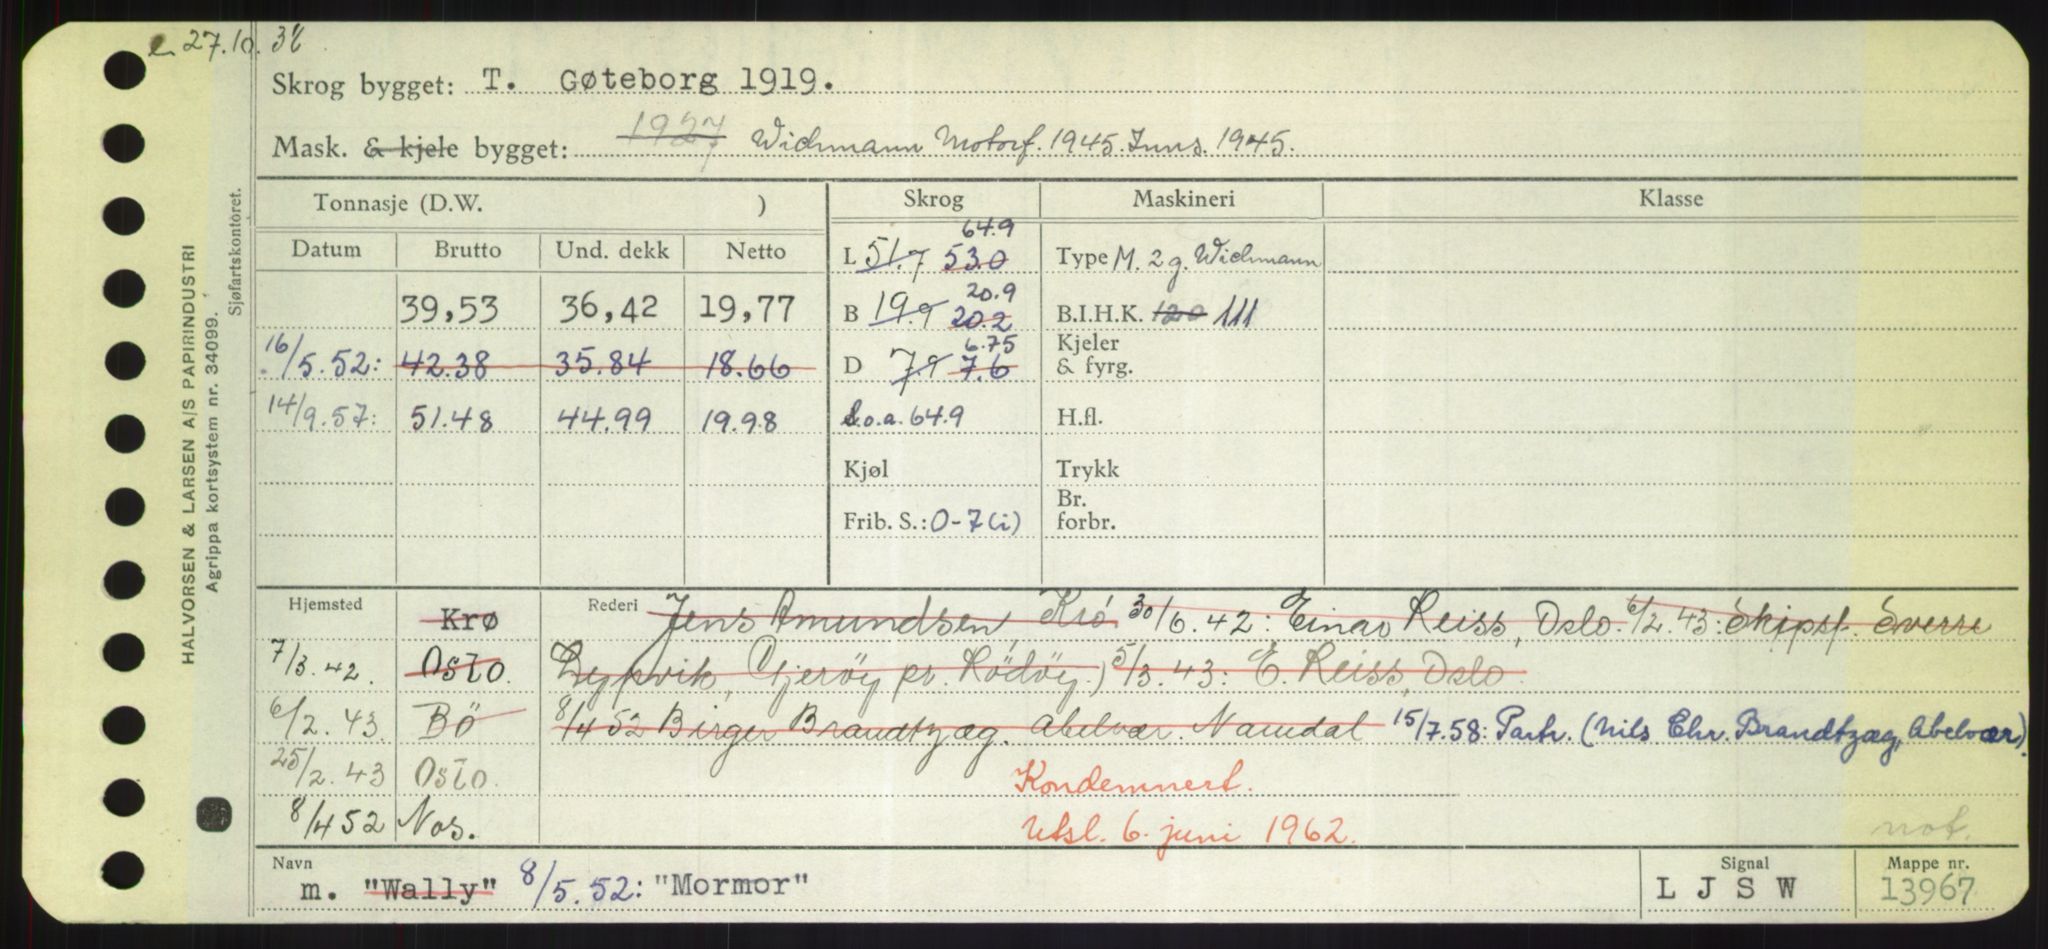 27.10.38
Skrog bygget: T. Gøteborg 1919.
Mask. & kjele bygget: 1927 Wichmann Motorf. 1945. Inns. 1945.
Tonnasje (D.W. ) Skrog Maskineri Klasse
Datum Brutto Und. dekk Netto
64.9
L 51.7 53.0 Type M. 2 g. Wichmann
39,53 36,42 19,77
20.9
B 19.9 20.2 B.I.H.K. 120 111
16/5.52: 42.38 35.84 18.66
6.75
D 7.9 7.6 Kjeler & fyrg.
14/9.57: 51.48 44.99 19.98
L.o.a. 64.9 H.fl.
Kjøl Trykk
Frib. S.: 0-7 (i) Br. forbr.
Hjemsted Krø Rederi Jens Amundsen, Krø 30/6.42: Einar Reiss, Oslo. 6/2.43: Skipsf. Sverre
7/3.42. Oslo. Gjerøy pr. Rödöy.) 5/3.43: E. Reiss, Oslo.
6/2.43. Bö 8/4 52 Birger Brandtzæg. Abelvær. Namdal 15/7.58: Partr. (Nils Chr. Brandtzæg, Abelvær).
25/2.43 Oslo. Kondemnert.
8/4 52 Nos. Utsl. 6. juni 1962. not.
Navn Signal Mappe nr.
m. "Wally" 8/5.52: "Mormor" L J S W 13967
HALVORSEN & LARSEN A/S PAPIRINDUSTRI
Agrippa kortsystem nr. 34099.
Sjøfartskontoret.